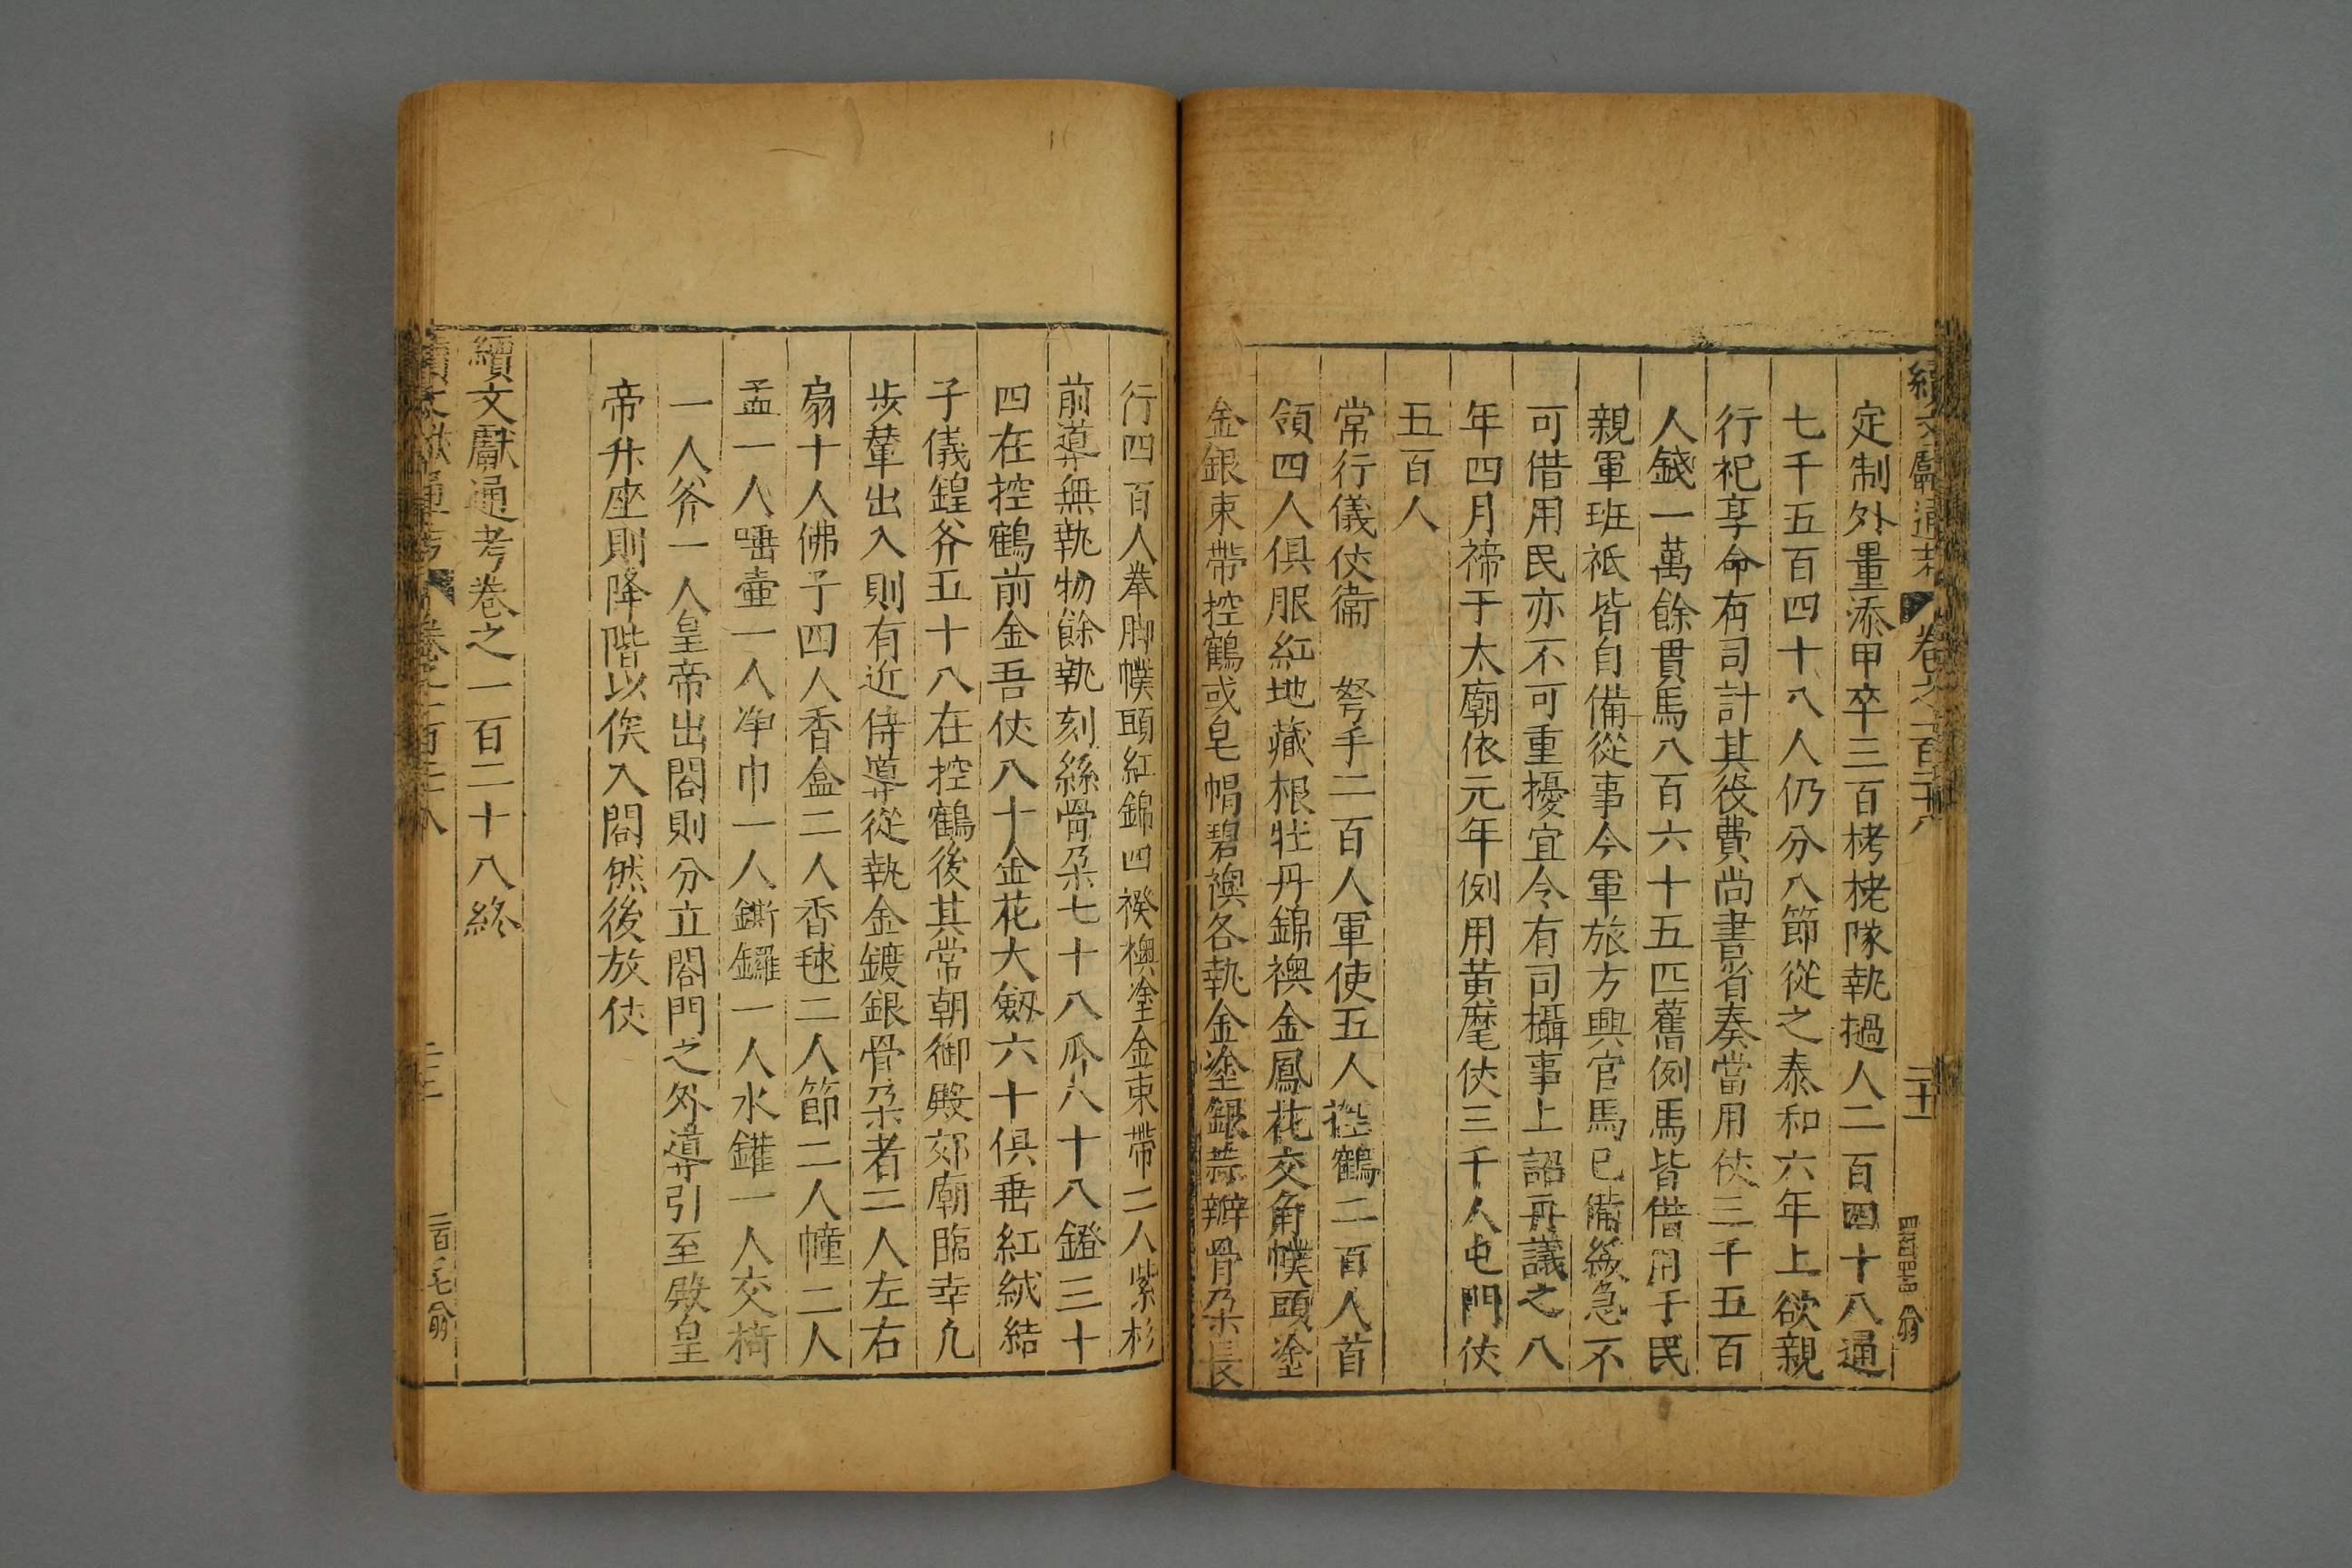 續文獻通考 卷之一百二十八 二十一
定制外量添甲卒三百栲栳隊執撾人二百四十八通
七千五百四十八人仍分八節從之泰和六年上欲親
行祀享命有司計其役費尚書省奏當用俠三千五百
人錢一萬餘貫馬八百六十五匹舊例馬皆借用于民
親軍班祗皆自備從事今軍旅方興官馬已備緩急不
可借用民亦不可重擾宜令有司攝事上詔再議之八
年四月禘于太廟依元年例用黄麾俠三千人屯門俠
五百人
常行儀俠衞 弩手二百人軍使五人控鶴二百人首
領四人俱服紅地藏根牡丹錦襖金鳳花交角幞頭塗
金銀束帶控鶴或皂帽碧襖各執金塗銀蒜瓣骨朶長
行四百人拳脚幞頭紅錦四䙆襖塗金束帶二人紫衫
前導無執物餘執刻絲骨朶七十八瓜八十八鐙三十
四在控鶴前金吾俠八十金花大劔六十俱垂紅絨結
子儀鍠斧五十八在控鶴後其常朝御殿郊廟臨幸凢
步輦出入則有近侍導從執金鍍銀骨朶者二人左右
扇十人佛子四人香盒二人香毬二人節二人幢二人
盂一人唾壷一人净巾一人鐁鑼一人水鑵一人交椅
一人斧一人皇帝出閤則分立閤門之外導引至殿皇
帝升座則降階以俟入閤然後放俠
續文獻通考卷之一百二十八終
續文獻通考 卷之一百二十八